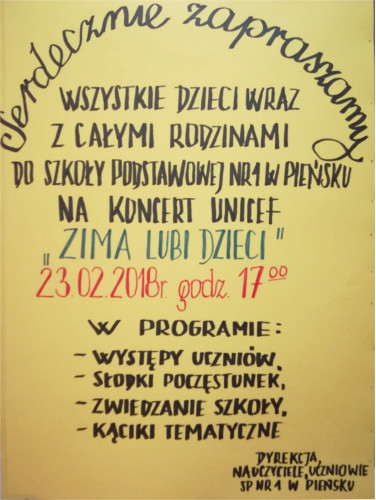 Serdecznie zapraszamy
WSZYSTKIE DZIECI WRAZ
Z CAŁYMI RODZINAMI
DO SZKOŁY PODSTAWOWEJ NR 1 W PIEŃSKU
NA KONCERT UNICEF
„ZIMA LUBI DZIECI"
23.02.2018r. godz. 17⁰⁰
W PROGRAMIE:
- WYSTĘPY UCZNIÓW,
- SŁODKI POCZĘSTUNEK,
- ZWIEDZANIE SZKOŁY,
- KĄCIKI TEMATYCZNE
DYREKCJA,
NAUCZYCIELE, UCZNIOWIE
SP NR 1 W PIEŃSKU